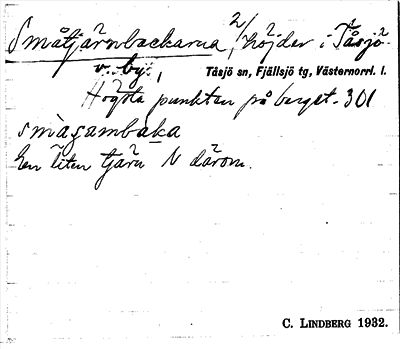 Småtjärnbackarna, 2/ höjder i Tåsjö
v. by.
Tåsjö sn, Fjällsjö tg, Västernorrl. l.
Högsta punkten på berget. 301
småɡambaka
En liten tjärn N därom.
C. LINDBERG 1932.